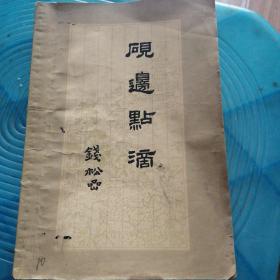 硯邊點滴
錢松嵒
10